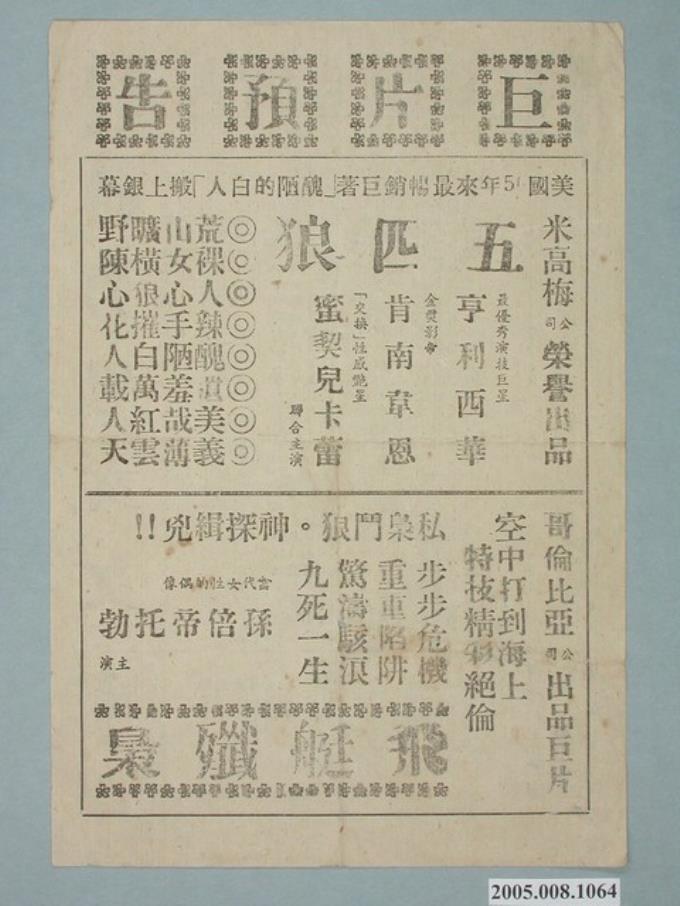 巨片預告
美國5年來最暢銷巨著「醜陋的白人」搬上銀幕
米高梅公司榮譽出品
五匹狼
最優秀演技巨星
亨利西華
金獎影帝
肯南韋恩
「交換」性感艷星
蜜契兒卡蕾
聯合主演
◎荒山曠野
◎裸女橫陳
◎人心狼心
◎辣手摧花
◎醜陋白人
◎遺羞萬載
◎美哉紅人
◎義薄雲天
哥倫比亞公司出品巨片
空中打到海上
特技精彩絕倫
私梟鬥狠。神探緝兇!!
步步危機
重重陷阱
驚濤駭浪
九死一生
當代女性的偶像
孫倍帝托勃
主演
飛艇殲梟
2005.008.1064